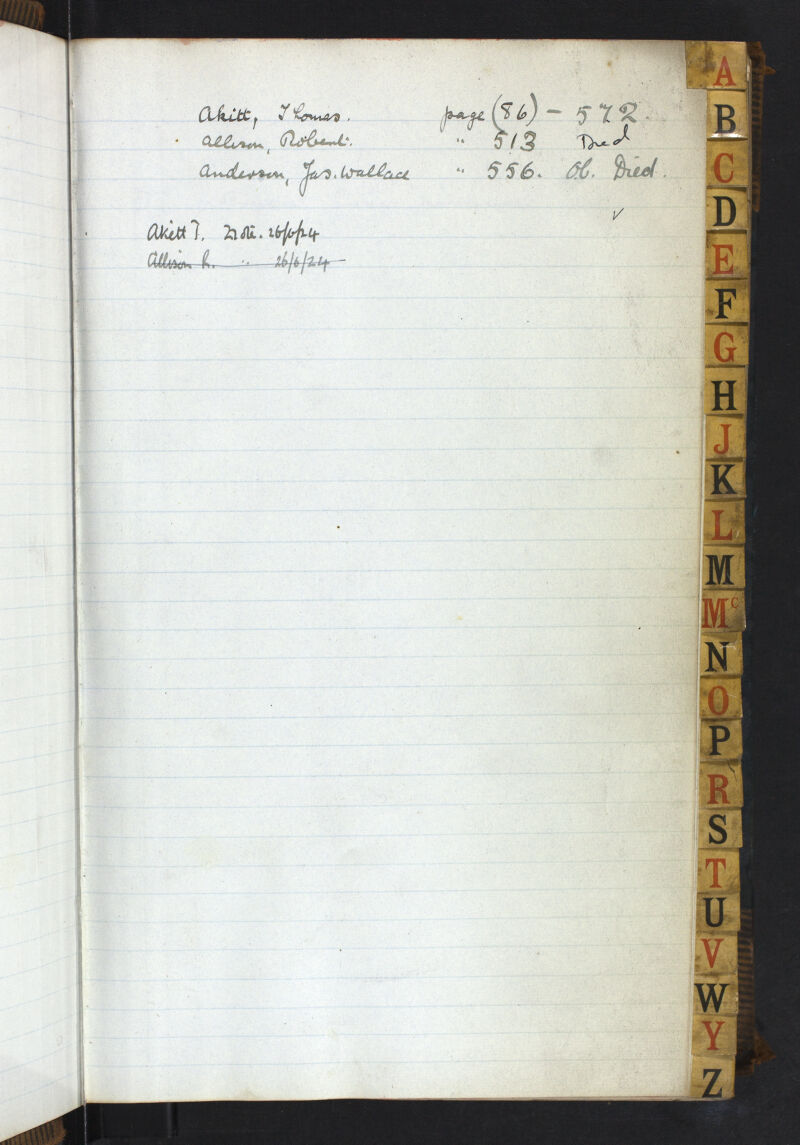 Akitt, Thomas. page (86) - 572.
Allison, Robert. " 513 Died
Anderson, Jas. Wallace " 556. Ob. Died.
Akett T. Note. 26/6/24
Allison R. " 26/6/24
A
B
C
D
E
F
G
H
J
K
L
M
Mc
N
O
P
R
S
T
U
V
W
Y
Z